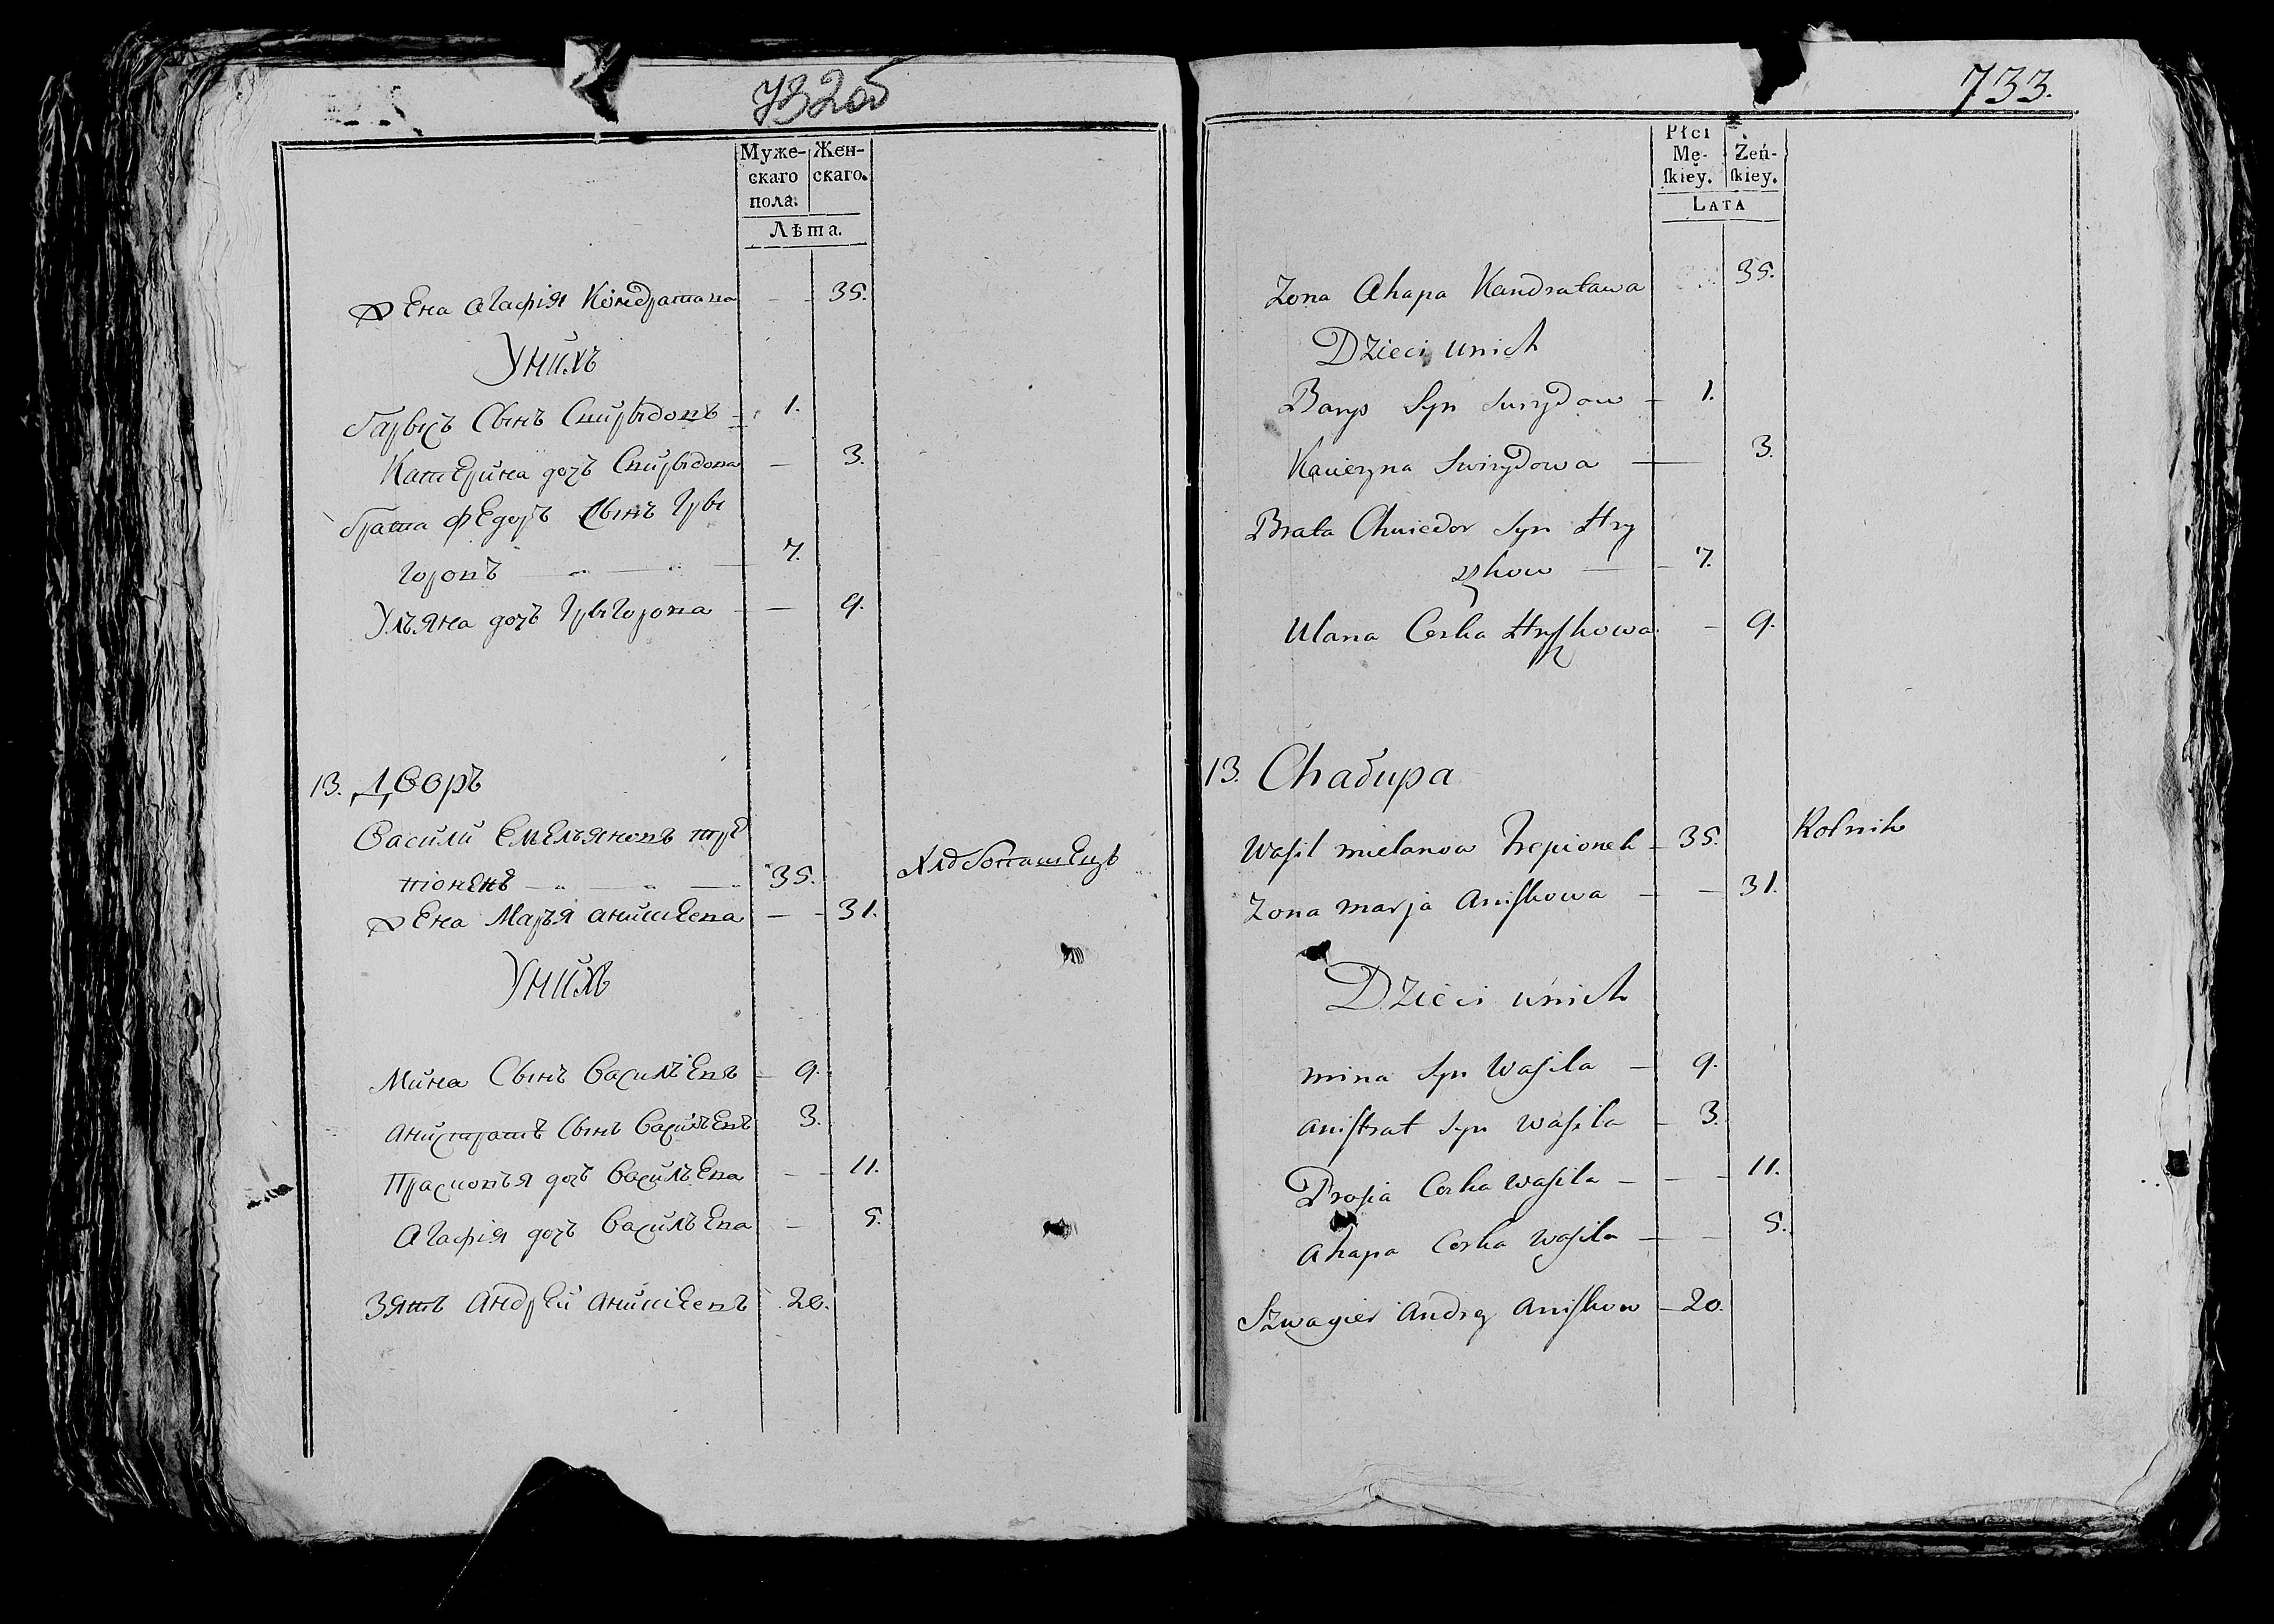 732об
Муже-
скаго
пола.
Жен-
скаго.
Лѣта.
Жена Агафія Кондратова — 35.
У нихъ
Барысъ Сынъ Спирыдонъ — 1.
Катерина дочъ Спирыдона — 3.
брата Федоръ Сынъ Гры
горовъ — 7.
Ульяна дочъ Грыгорова — 9.
13. Дворъ
Василй Емельяновъ тре
піонекъ — 35. Хлѣбопашецъ
Жена Марья Анишкева — 31.
У нихъ
Мина Сынъ Васильевъ 9.
Анистратъ Сынъ Васильевъ 3.
Прасковья дочъ Васильева — 11.
Агафія дочъ Васильева — 5.
Зять Андрей Анишкевъ 20.
733.
Płci
Mę-
ſkiey.
Żeń-
ſkiey.
Lata
Zona Ahapa Kandratawa 35.
Dzieci unich
Barys Syn Swirydow — 1.
Kacieryna Swirydowa — 3.
Brata Chwiedor Syn Hry
szkow — 7.
Ulana Corka Hryszkowa — 9.
13. Chałupa
Waſil mielanow Trepionek — 35. Rolnik
Zona marja Aniſkowa — 31.
Dzieci unich
mina Syn Waſila — 9.
aniſtrat Syn waſila — 3.
Prosia Corka waſila — 11.
ahapa Corka waſila — 5.
Szwagier Andrey Aniſkow — 20.